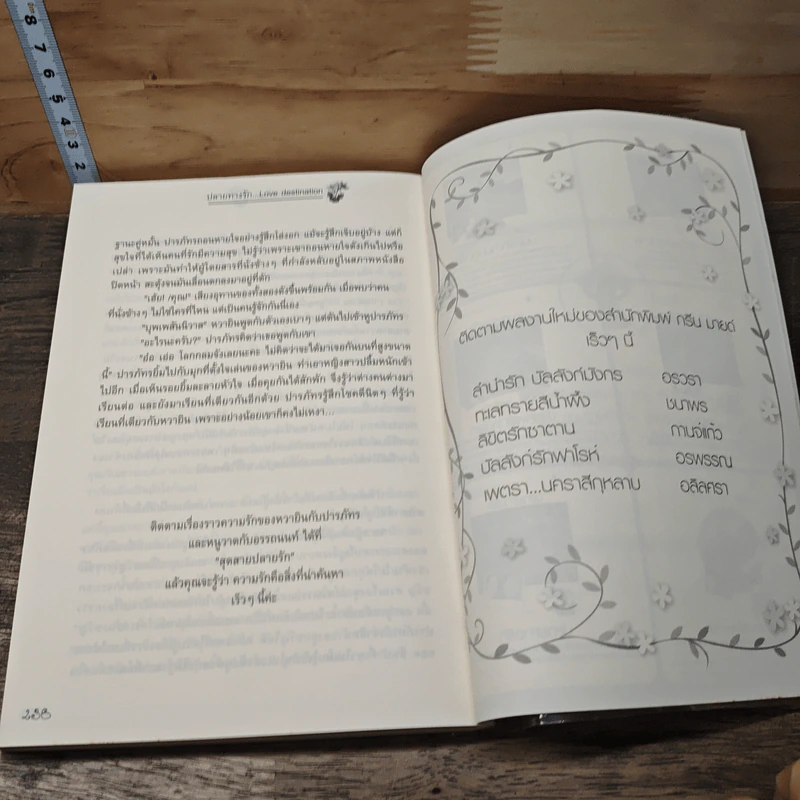 8
7
6
5
4
3
2
ปลายทางรัก...Love destination
ฐานะคู่หมั้น ปารภัทรถอนหายใจอย่างรู้สึกโล่งอก แม้จะรู้สึกเจ็บอยู่บ้าง แต่ก็
สุขใจที่ได้เห็นคนที่รักมีความสุข ไม่รู้ว่าเพราะเขาถอนหายใจดังเกินไปหรือ
เปล่า เพราะมันทำให้ผู้โดยสารที่นั่งข้างๆ ที่กำลังหลับอยู่ในสภาพหนังสือ
ปิดหน้า สะดุ้งจนมันเลื่อนตกลงมาอยู่ที่ตัก
"เฮ้ย! /คุณ!" เสียงอุทานของทั้งสองดังขึ้นพร้อมกัน เมื่อพบว่าคน
ที่นั่งข้างๆ ไม่ใช่ใครที่ไหน แต่เป็นคนรู้จักกันนี่เอง
"บุพเพสันนิวาส" หวายินพูดกับตัวเองเบาๆ แต่ดันไปเข้าหูปารภัทร
"อะไรนะครับ?" ปารภัทรคิดว่าเธอพูดกับเขา
"อ๋อ เอ่อ โลกกลมจังเลยนะคะ ไม่คิดว่าจะได้มาเจอกันบนที่สูงขนาด
นี้" ปารภัทรยิ้มไปกับมุกที่ตั้งใจเล่นของหวายิน ทำเอาหญิงสาวปลื้มหนักเข้า
ไปอีก เมื่อเห็นรอยยิ้มละลายหัวใจ เมื่อคุยกันได้สักพัก จึงรู้ว่าต่างคนต่างมา
เรียนต่อ และยังมาเรียนที่เดียวกันอีกด้วย ปารภัทรรู้สึกโชคดีนิดๆ ที่รู้ว่า
เรียนที่เดียวกับหวายิน เพราะอย่างน้อยเขาก็คงไม่เหงา...
ติดตามเรื่องราวความรักของหวายินกับปารภัทร
และหนูวาดกับอรรถนนท์ ได้ที่
"สุดสายปลายรัก"
แล้วคุณจะรู้ว่า ความรักคือสิ่งที่น่าค้นหา
เร็วๆ นี้ค่ะ
ติดตามผลงานใหม่ของสำนักพิมพ์ กรีน มายด์
เร็วๆ นี้
ลำนำรัก บัลลังก์มังกร อรวรา
ทะเลทรายสีน้ำผึ้ง ชนาพร
ลิขิตรักซาตาน กานจ์แก้ว
บัลลังก์รักฟาโรห์ อรพรรณ
เพตรา...นคราสีกุหลาบ อลิลศรา